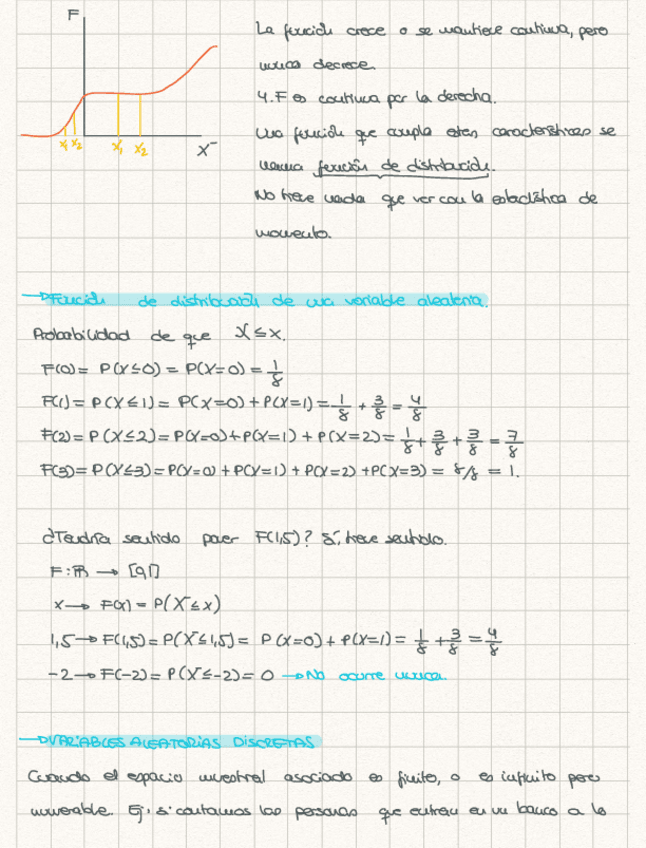 F
x₁ x₂ x₁' x₂ X
La función crece o se mantiene continua, pero
nunca decrece.
4. F es continua por la derecha.
Una función que cumpla estas características se
llama función de distribución.
No tiene nada que ver con la estadística de
momento.
→ Función de distribución de una variable aleatoria.
Probabilidad de que X ≤ x.
F(0) = P(X ≤ 0) = P(X=0) = 1/8
F(1) = P(X ≤ 1) = P(X=0) + P(X=1) = 1/8 + 3/8 = 4/8
F(2) = P(X ≤ 2) = P(X=0) + P(X=1) + P(X=2) = 1/8 + 3/8 + 3/8 = 7/8
F(3) = P(X ≤ 3) = P(X=0) + P(X=1) + P(X=2) + P(X=3) = 8/8 = 1.
¿Tendría sentido poner F(1,5)? Sí, tiene sentido.
F: ℝ → [0,1]
x → F(x) = P(X ≤ x)
1,5 → F(1,5) = P(X ≤ 1,5) = P(X=0) + P(X=1) = 1/8 + 3/8 = 4/8
-2 → F(-2) = P(X ≤ -2) = 0 → No ocurre nunca.
→ VARIABLES ALEATORIAS DISCRETAS
Cuando el espacio muestral asociado es finito, o es infinito pero
numerable. Ej: si contamos las personas que entran en un banco a lo